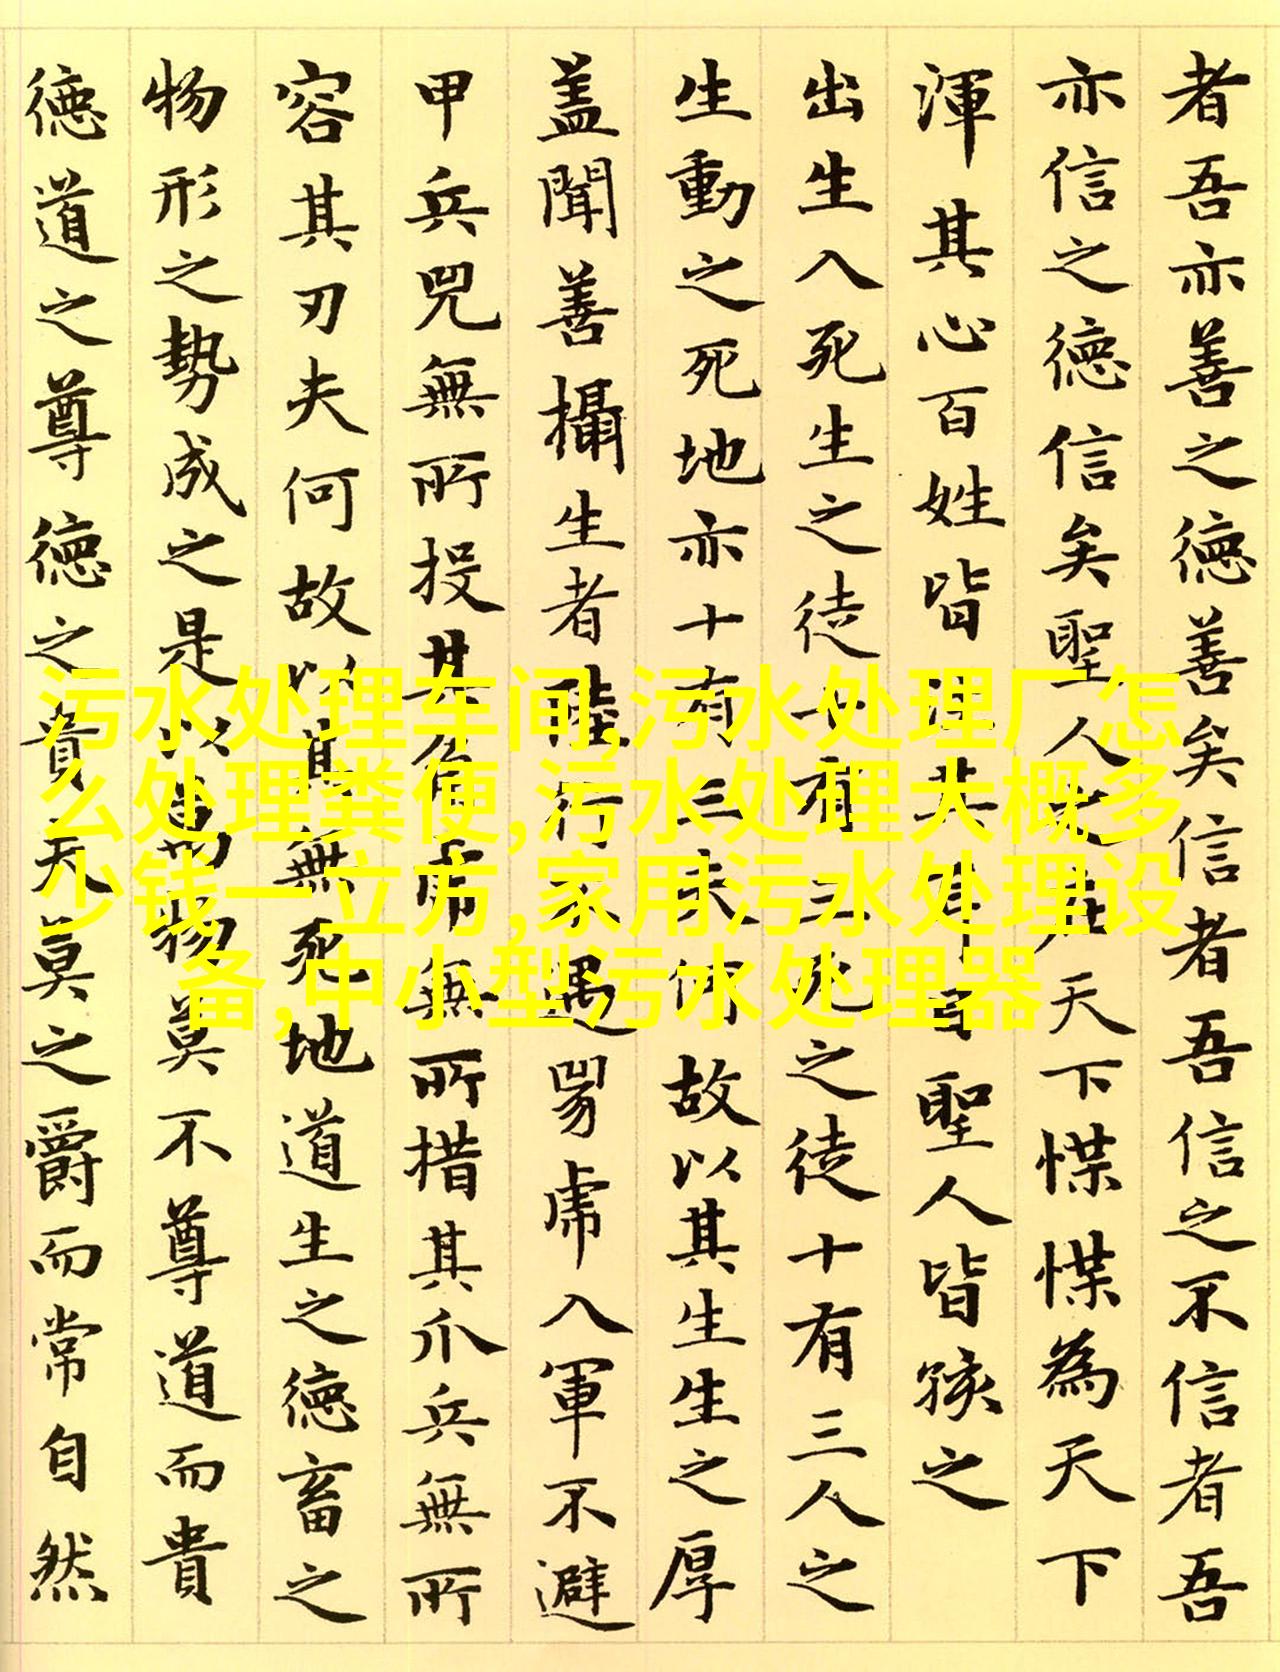 者吾亦善之德善矣信者吾信之不信者吾
亦信之德信矣聖人之在天下惵惵為天下
渾其心百姓皆注其耳目聖人皆孩之
出生入死生之徒十有三死之徒十有三人之
生動之死地亦十有三夫何故以其生生之厚
蓋聞善攝生者陸行不遇兕虎入軍不避
甲兵兕無所投其角虎無所措其爪兵無所
容其刃夫何故以其無死地道生之德畜之
物形之勢成之是以萬物莫不尊道而貴
德道之尊德之貴夫莫之爵而常自然
污水处理车间,污水处理厂怎
么处理粪便,污水处理大概多
少钱一立方,家用污水处理设
备,中小型污水处理器